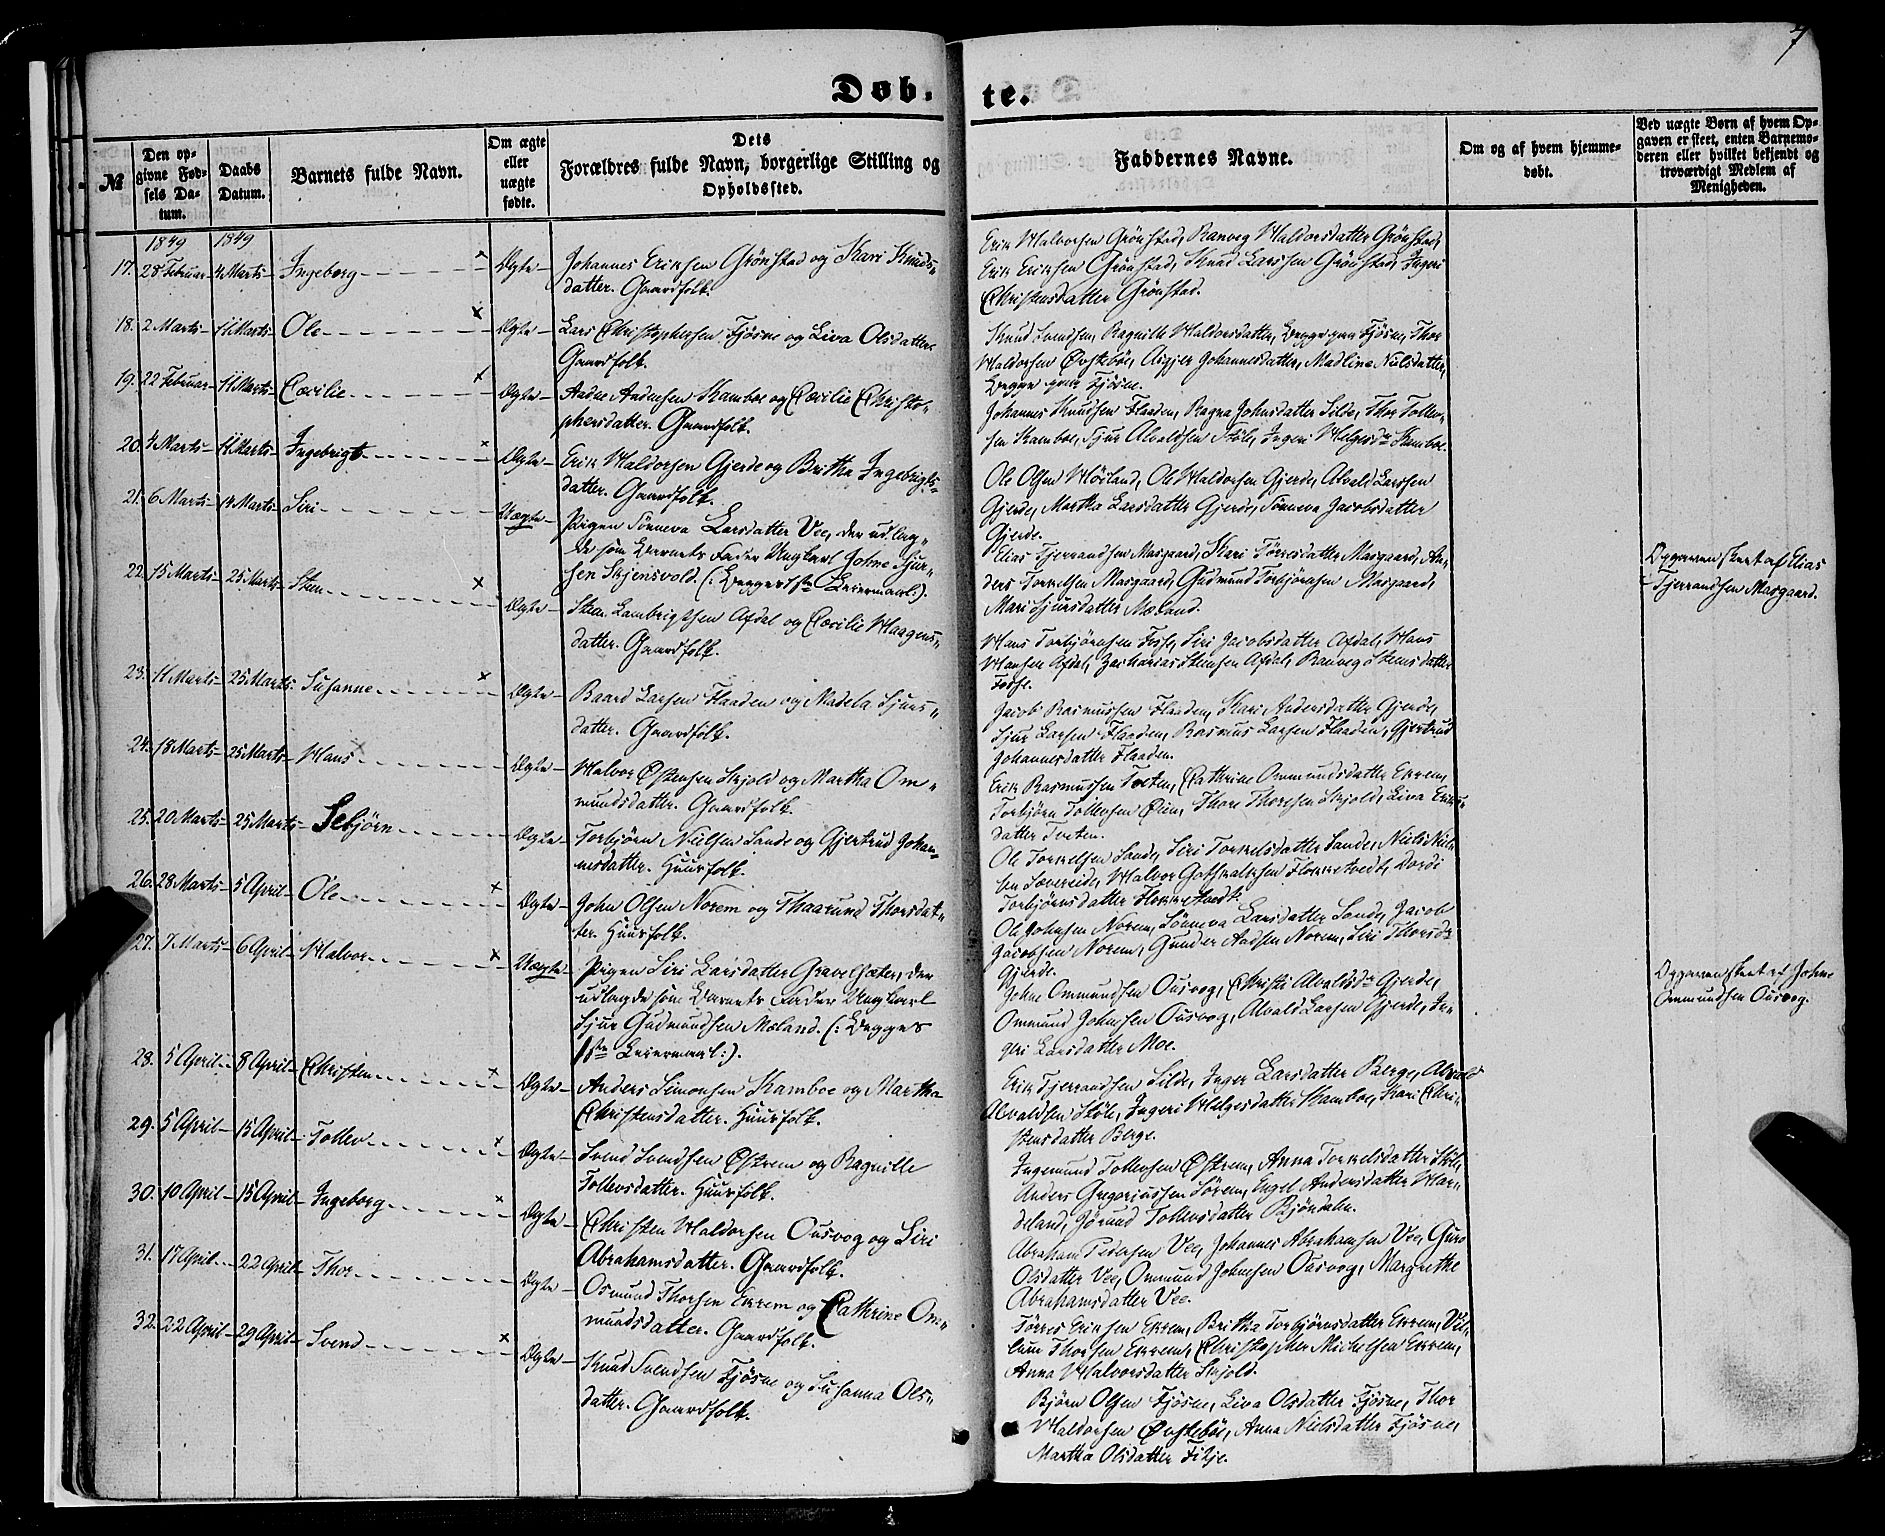 7
Døb- te.
№
Den opgivne Fødsels Datum.
Daabs Datum.
Barnets fulde Navn.
Om ægte eller uægte fødte.
Dets Forældres fulde Navn, borgerlige Stilling og Opholdssted.
Faddernes Navne.
Om og af hvem hjemmedøbt.
Ved uægte Børn af hvem Opgaven er skeet, enten Barnemoderen eller hvilket bekjendt og troværdigt Medlem af Menigheden.
1849 1849
17. 28 Februar 4 Marts Ingeborg Ægte Johannes Eriksen Grønstad og Kari Knuds-
datter. Gaardfolk.
Erik Halvorsen Grønstad, Ranveg Haldorsdatter Grønstad,
Erik Eriksen Grønstad, Knud Larssen Grønstad, Ingeri
Christensdatter Grønstad.
18. 2 Marts 11 Marts Ole Ægte Lars Christophersen Fjøsne og Liva Olsdatter.
Gaardfolk.
Knud Svendsen, Ragnille Haldorsdatter, begge paa Fjøsne, Thor
Haldorsen Øvstebøe, Johannesdatter, Madline Nielsdatter,
begge paa Fjøsne.
19. 22 Februar 11 Marts Cecilie Ægte Aadne Aadnesen Kamboe og Cecilie Christo-
phersdatter. Gaardfolk.
Johannes Knudsen Flaaden, Ragna Johnsdatter Silde, Thor Tollev-
sen Kamboe, Sjur Alvaldsen Støle, Ingeri Helgesdr Kamboe.
20. 4 Marts 11 Marts Ingebrigt Ægte Erik Haldorsen Gjerde og Britha Ingebrigts-
datter. Gaardfolk.
Ole Olsen Høiland, Ole Haldorsen Gjerde, Alvald Larssen
Gjerde, Martha Larsdatter Gjerde, Sønneva Jacobsdatter
Gjerde.
21. 6 Marts 14 Marts Siri Uægte Pigen Sønneva Larsdatter Vee, den udlag-
de som Barnets Fader Ungkarl Johne Sjur-
sen Skjensvold. (: Begges 1ste Leiermaal:).
Elias Tjerrandsen Masgaard, Kari Tørresdatter Masgaard, An-
ders Torkelsen Masgaard, Gudmund Torbjørnsen Masgaard,
Mari Sjursdatter Mæland.
Opgaven skeet af Elias
Tjerrandsen Masgaard.
22. 15 Marts 25 Marts Steen Ægte Steen Lambrigtsen Afdal og Cecilie Haagens-
datter. Gaardfolk.
Hans Torbjørnsen Fosse, Siri Jacobsdatter Afdal, Hans
Hansen Afdal, Zacharias Steensen Afdal, Ranveg Steensdatter
Fosse.
23. 11 Marts 25 Marts Susanne Ægte Baard Larsen Flaaden og Madela Sjurs-
datter. Gaardfolk.
Jacob Rasmussen Flaaden, Kari Andersdatter Gjerde,
Sjur Larsen Flaaden, Rasmus Larsen Flaaden, Gjertrud
Johannesdatter Flaaden.
24. 18 Marts 25 Marts Hans Ægte Halvor Østensen Skjold og Martha Om-
mundsdatter. Gaardfolk.
Erik Rasmussen Tveten, Cathrine Ommundsdatter Ekrem,
Torbjørn Tollevsen Øien, Thore Thoresen Skjold, Liva Eriks-
datter Tveten.
25. 20 Marts 25 Marts Sebjørn Ægte Torbjørn Nielsen Sande og Gjertrud Johan-
nesdatter. Huusfolk.
Ole Torkelsen Sande, Siri Torkelsdatter Sande, Niels Niel-
sen Sævereide, Halvor Gotskalksen Flokketvedt, Dordi
Torbjørnsdatter Flokketvedt.
26. 28 Marts 5 April Ole Ægte John Olsen Norem og Thaarund Thorsdat-
ter. Huusfolk.
Ole Johnsen Norem, Sønneva Larsdatter Sande, Jacob
Jacobsen Norem, Gunder Aadsen Norem, Siri Thorsdr
Gjerde.
27. 7 Marts 6 April Halvor Uægte Pigen Siri Larsdatter Gravelsæter, den
udlagde som Barnets Fader Ungkarl
Sjur Gudmundsen Mæland. (: Begges
1ste Leiermaal:).
Johne Ommundsen Ousvog, Christi Alvaldsdr Gjerde,
Ommund Johnesen Ousvog, Alvald Larsen Gjerde, In-
geri Larsdatter Moe.
Opgaven skeet af Johne
Ommundsen Ousvog.
28. 5 April 8 April Christen Ægte Anders Simonsen Kamboe og Martha
Christensdatter. Huusfolk.
Erik Tjerrandsen Silde, Inger Larsdatter Berge, Alvald
Alvaldsen Støle, Ingeri Helgesdatter Kamboe, Kari Chri-
stensdatter Berge.
29. 5 April 15 April Tollev Ægte Svend Svendsen Østrem og Ragnille
Tollevsdatter. Huusfolk.
Ingemund Tollevsen Østrem, Anna Torkelsdatter Støle,
Anders Gregoriussen Sørem, Engel Andersdatter Har-
deland, Jørund Tollevsdatter Bjøndalen.
30. 10 April 15 April Ingeborg Ægte Christen Haldorsen Ousvog og Siri
Abrahamsdatter. Gaardfolk.
Abraham Pedersen Vee, Johannes Abrahamsen Vee, Guro
Olsdatter Vee, Ommund Johnesen Ousvog, Margrethe
Abrahamsdatter Vee.
31. 17 April 22 April Thor Ægte Osmund Thorsen Ekrem og Cathrine Om-
mundsdatter. Gaardfolk.
Tørres Eriksen Ekrem, Britha Torbjørnsdatter Ekrem, Vil-
lum Thorsen Ekrem, Christopher Michelsen Ekrem,
Anna Halvorsdatter Skjold.
32. 22 April 29 April Svend Ægte Knud Svendsen Fjøsne og Susanna Ols-
datter. Gaardfolk.
Bjørn Olsen Fjøsne, Liva Olsdatter Fjøsne, Thor
Haldorsen Øvstebøe, Anna Nielsdatter Fjøsne,
Martha Olsdatter Fitje.